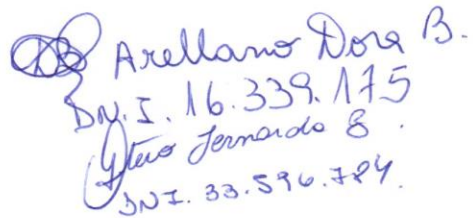 Arellano Dora B.
D.N.I. 16.339.175
Fernando E.
DNI. 33.596.784.